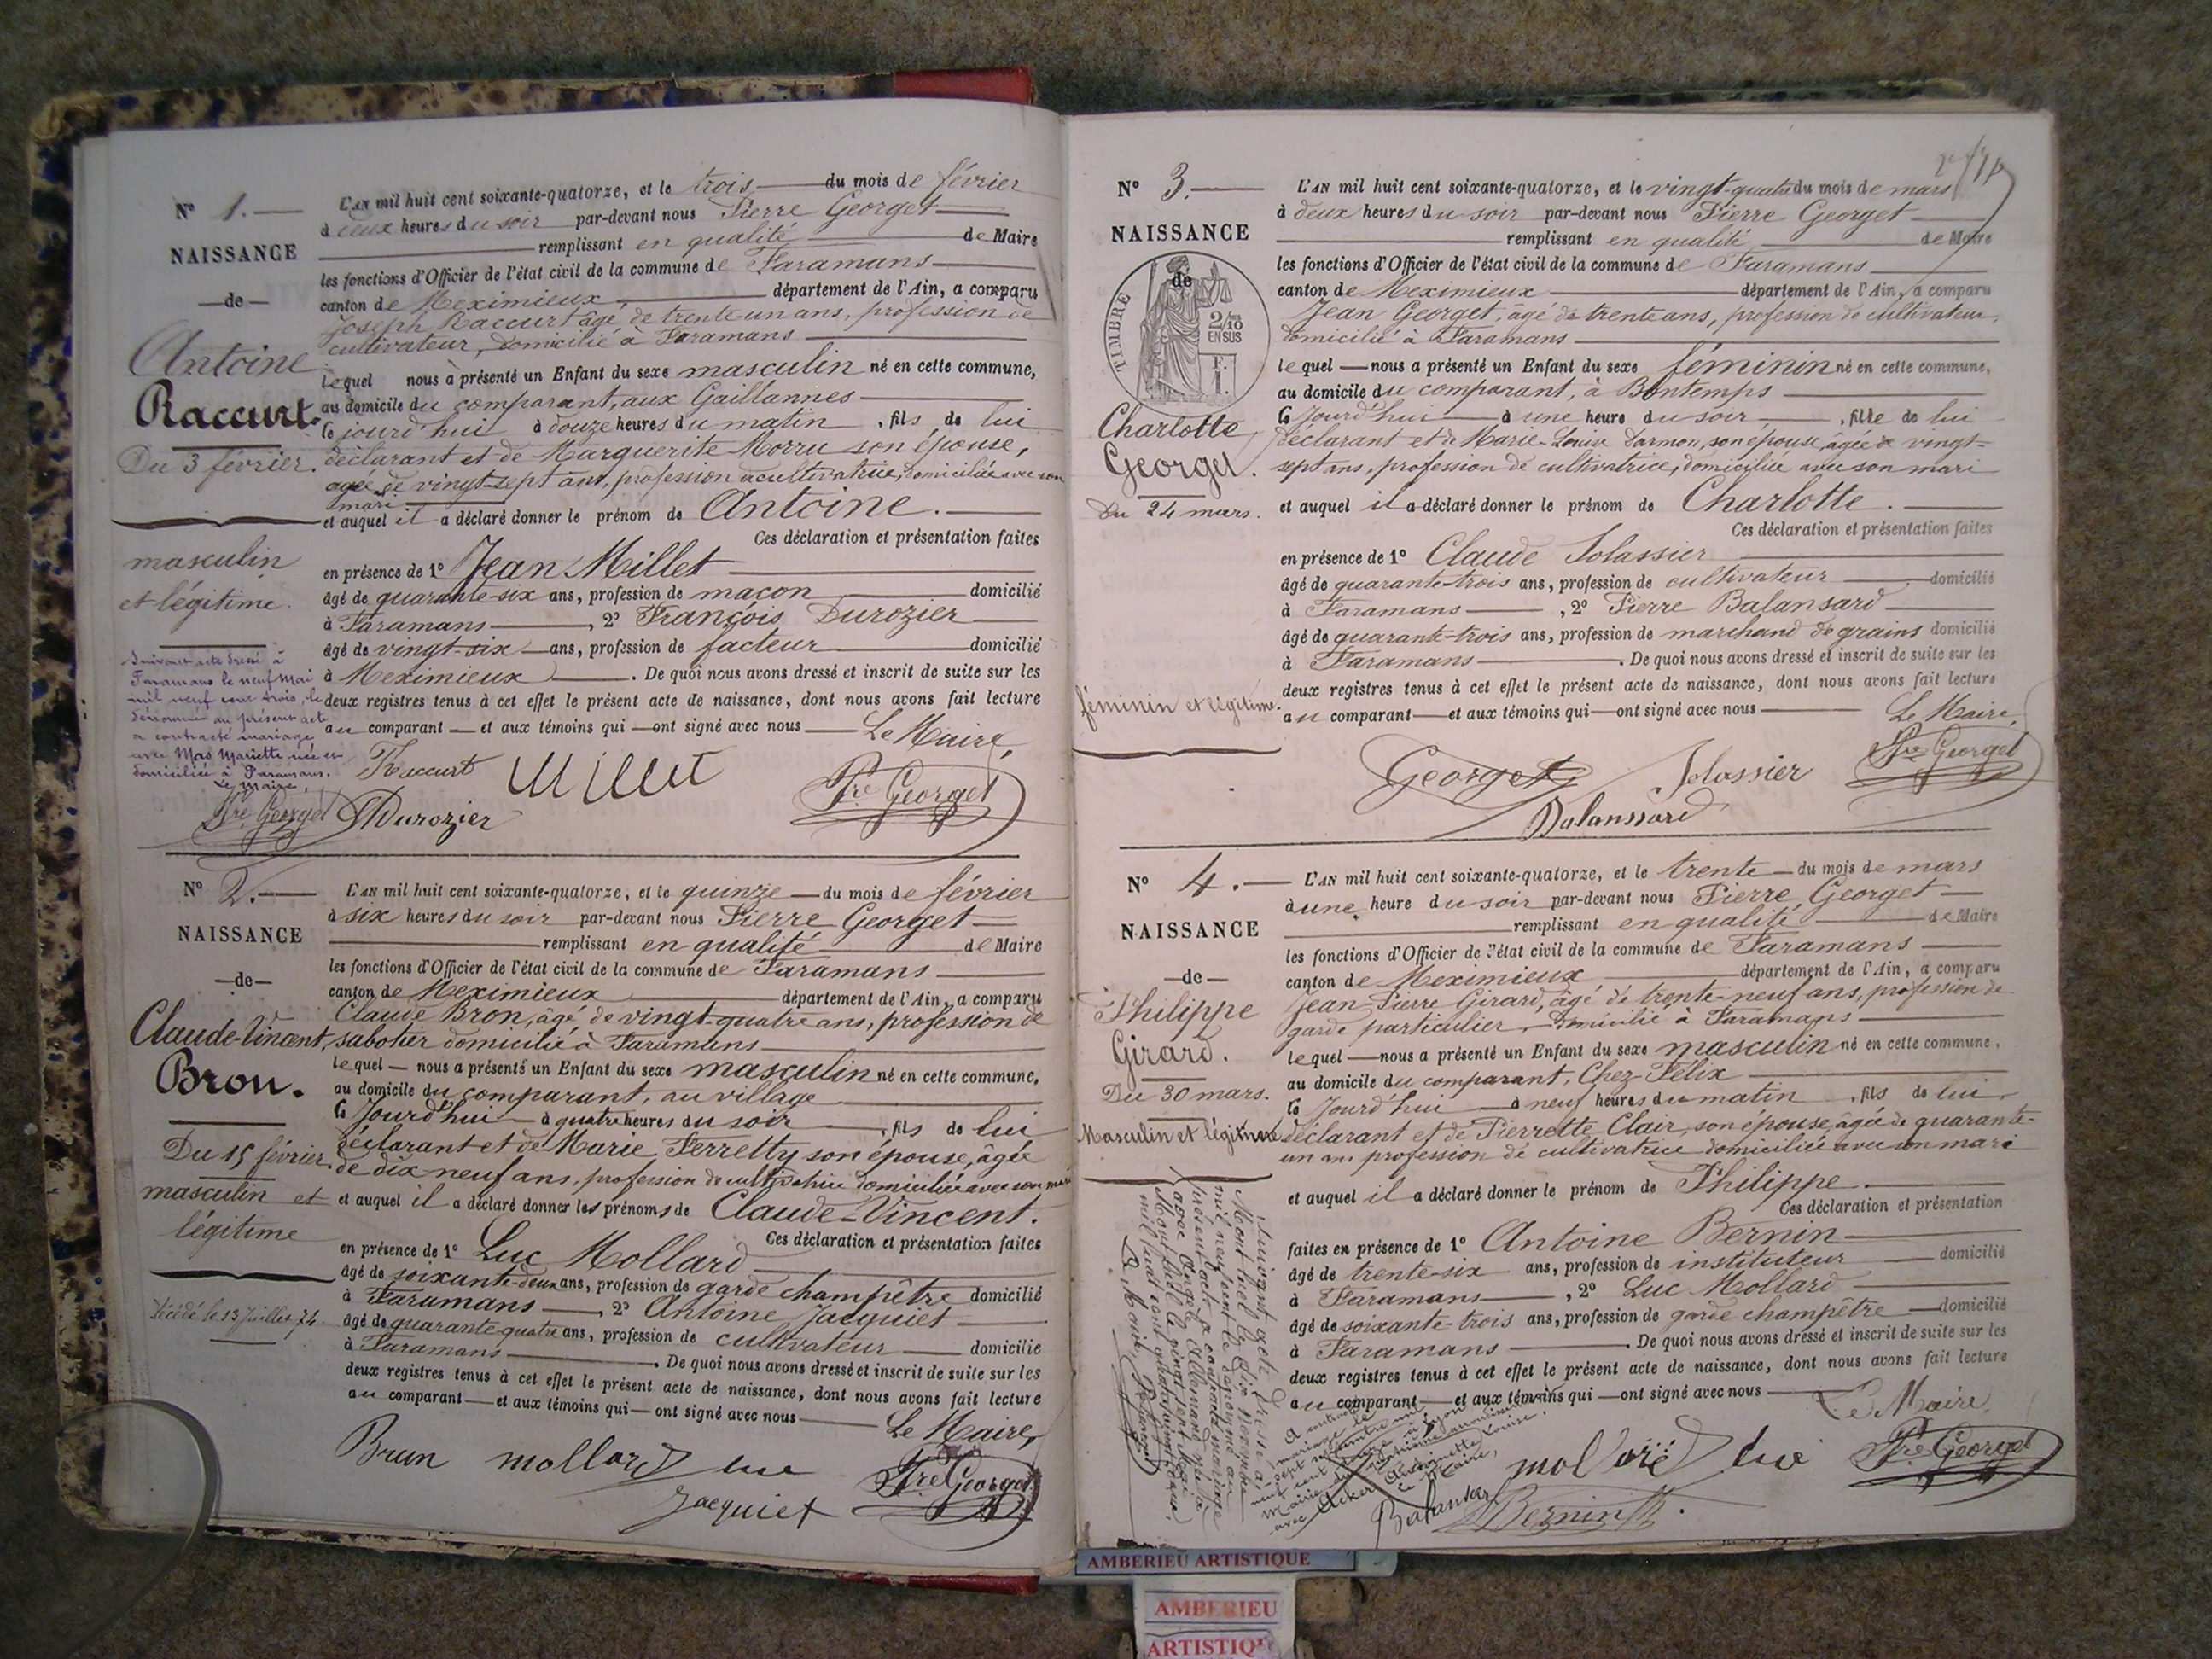 N° 1.
NAISSANCE
de
Antoine
Raccurt.
Du 3 février.
masculin
et légitime.
Suivant acte dressé à
Faramans le neuf mai
mil neuf cent trois, le
dénommé au présent acte
a contracté mariage
avec Mas Mariette née et
domiciliée à Faramans.
Le Maire,
Pre Georget
L'AN mil huit cent soixante-quatorze, et le trois du mois de février
à deux heures du soir par-devant nous Pierre Georget
remplissant en qualité de Maire
les fonctions d'Officier de l'état civil de la commune de Faramans
canton de Meximieux département de l'Ain, a comparu
Joseph Raccurt âgé de trente un ans, profession de
cultivateur, domicilié à Faramans
lequel nous a présenté un Enfant du sexe masculin né en cette commune,
au domicile du comparant, aux Gaillannes
le jourd'hui à douze heures du matin, fils de lui
déclarant et de Marguerite Morru son épouse,
agée de vingt-sept ans, profession de cultivatrice, domiciliée avec son
mari.
et auquel il a déclaré donner le prénom de Antoine.
Ces déclaration et présentation faites
en présence de 1° Jean Millet
âgé de quarante-six ans, profession de maçon domicilié
à Faramans, 2° François Durozier
âgé de vingt-six ans, profession de facteur domicilié
à Meximieux. De quoi nous avons dressé et inscrit de suite sur les
deux registres tenus à cet effet le présent acte de naissance, dont nous avons fait lecture
au comparant et aux témoins qui ont signé avec nous
Le Maire,
Raccurt Millet Pre Georget
Durozier
N° 2.
NAISSANCE
de
Claude-Vincent
Bron.
Du 15 février.
masculin et
légitime
Décédé le 13 Juillet 74.
L'AN mil huit cent soixante-quatorze, et le quinze du mois de février
à six heures du soir par-devant nous Pierre Georget
remplissant en qualité de Maire
les fonctions d'Officier de l'état civil de la commune de Faramans
canton de Meximieux département de l'Ain, a comparu
Claude Bron, âgé de vingt-quatre ans, profession de
sabotier domicilié à Faramans
lequel nous a présenté un Enfant du sexe masculin né en cette commune,
au domicile du comparant, au village
le Jourd'hui à quatre heures du soir, fils de lui
déclarant et de Marie Ferretty son épouse, agée
de dix neuf ans, profession de cultivatrice domiciliée avec son mari
et auquel il a déclaré donner les prénoms de Claude-Vincent.
Ces déclaration et présentation faites
en présence de 1° Luc Mollard
âgé de soixante-deux ans, profession de garde champêtre domicilié
à Faramans, 2° Antoine Jacquiet
âgé de quarante-quatre ans, profession de cultivateur domicilié
à Faramans. De quoi nous avons dressé et inscrit de suite sur les
deux registres tenus à cet effet le présent acte de naissance, dont nous avons fait lecture
au comparant et aux témoins qui ont signé avec nous
Le Maire,
Brun mollard luc Pre Georget
Jacquiet
N° 3.
NAISSANCE
de
TIMBRE
2/10
EN SUS
F.
1.
Charlotte
Georget.
Du 24 mars.
féminin et légitime.
L'AN mil huit cent soixante-quatorze, et le vingt-quatre du mois de mars
à deux heures du soir par-devant nous Pierre Georget
remplissant en qualité de Maire
les fonctions d'Officier de l'état civil de la commune de Faramans
canton de Meximieux département de l'Ain, a comparu
Jean Georget, âgé de trente ans, profession de cultivateur,
domicilié à Faramans
lequel nous a présenté un Enfant du sexe féminin né en cette commune,
au domicile du comparant, à Bontemps
le Jourd'hui à une heure du soir, fille de lui
déclarant et de Marie-Louise Darmon, son épouse, agée de vingt-
sept ans, profession de cultivatrice, domiciliée avec son mari
et auquel il a déclaré donner le prénom de Charlotte.
Ces déclaration et présentation faites
en présence de 1° Claude Jolassier
âgé de quarante-trois ans, profession de cultivateur domicilié
à Faramans, 2° Pierre Balansard
âgé de quarante-trois ans, profession de marchand de grains domicilié
à Faramans. De quoi nous avons dressé et inscrit de suite sur les
deux registres tenus à cet effet le présent acte de naissance, dont nous avons fait lecture
au comparant et aux témoins qui ont signé avec nous
Le Maire,
Georget Jolassier Pre Georget
Balanssard
N° 4.
NAISSANCE
de
Philippe
Girard.
Du 30 mars.
Masculin et légitime.
Suivant acte dressé à
Montluel le dix novembre
mil neuf cent le dénommé au
présent acte a contracté mariage
avec
Le Maire,
L'AN mil huit cent soixante-quatorze, et le trente du mois de mars
à une heure du soir par-devant nous Pierre Georget
remplissant en qualité de Maire
les fonctions d'Officier de l'état civil de la commune de Faramans
canton de Meximieux département de l'Ain, a comparu
Jean Pierre Girard, âgé de trente-neuf ans, profession de
garde particulier domicilié à Faramans
lequel nous a présenté un Enfant du sexe masculin né en cette commune,
au domicile du comparant, Chez-Félix
le Jourd'hui à neuf heures du matin, fils de lui
déclarant et de Pierrette Clair, son épouse, agée de quarante-
un ans profession de cultivatrice domiciliée avec son mari
et auquel il a déclaré donner le prénom de Philippe.
Ces déclaration et présentation
faites en présence de 1° Antoine Bernin
âgé de trente-six ans, profession de instituteur domicilié
à Faramans, 2° Luc Mollard
âgé de soixante-trois ans, profession de garde champêtre domicilié
à Faramans. De quoi nous avons dressé et inscrit de suite sur les
deux registres tenus à cet effet le présent acte de naissance, dont nous avons fait lecture
au comparant et aux témoins qui ont signé avec nous
Le Maire,
A contracté
mariage le
sept
neuf cent
Mairie du
avec Acker Antoinette Louise.
Le Maire,
Balansard
mollard luc Pre Georget
Bernin
AMBERIEU ARTISTIQUE
AMBERIEU
ARTISTIQU